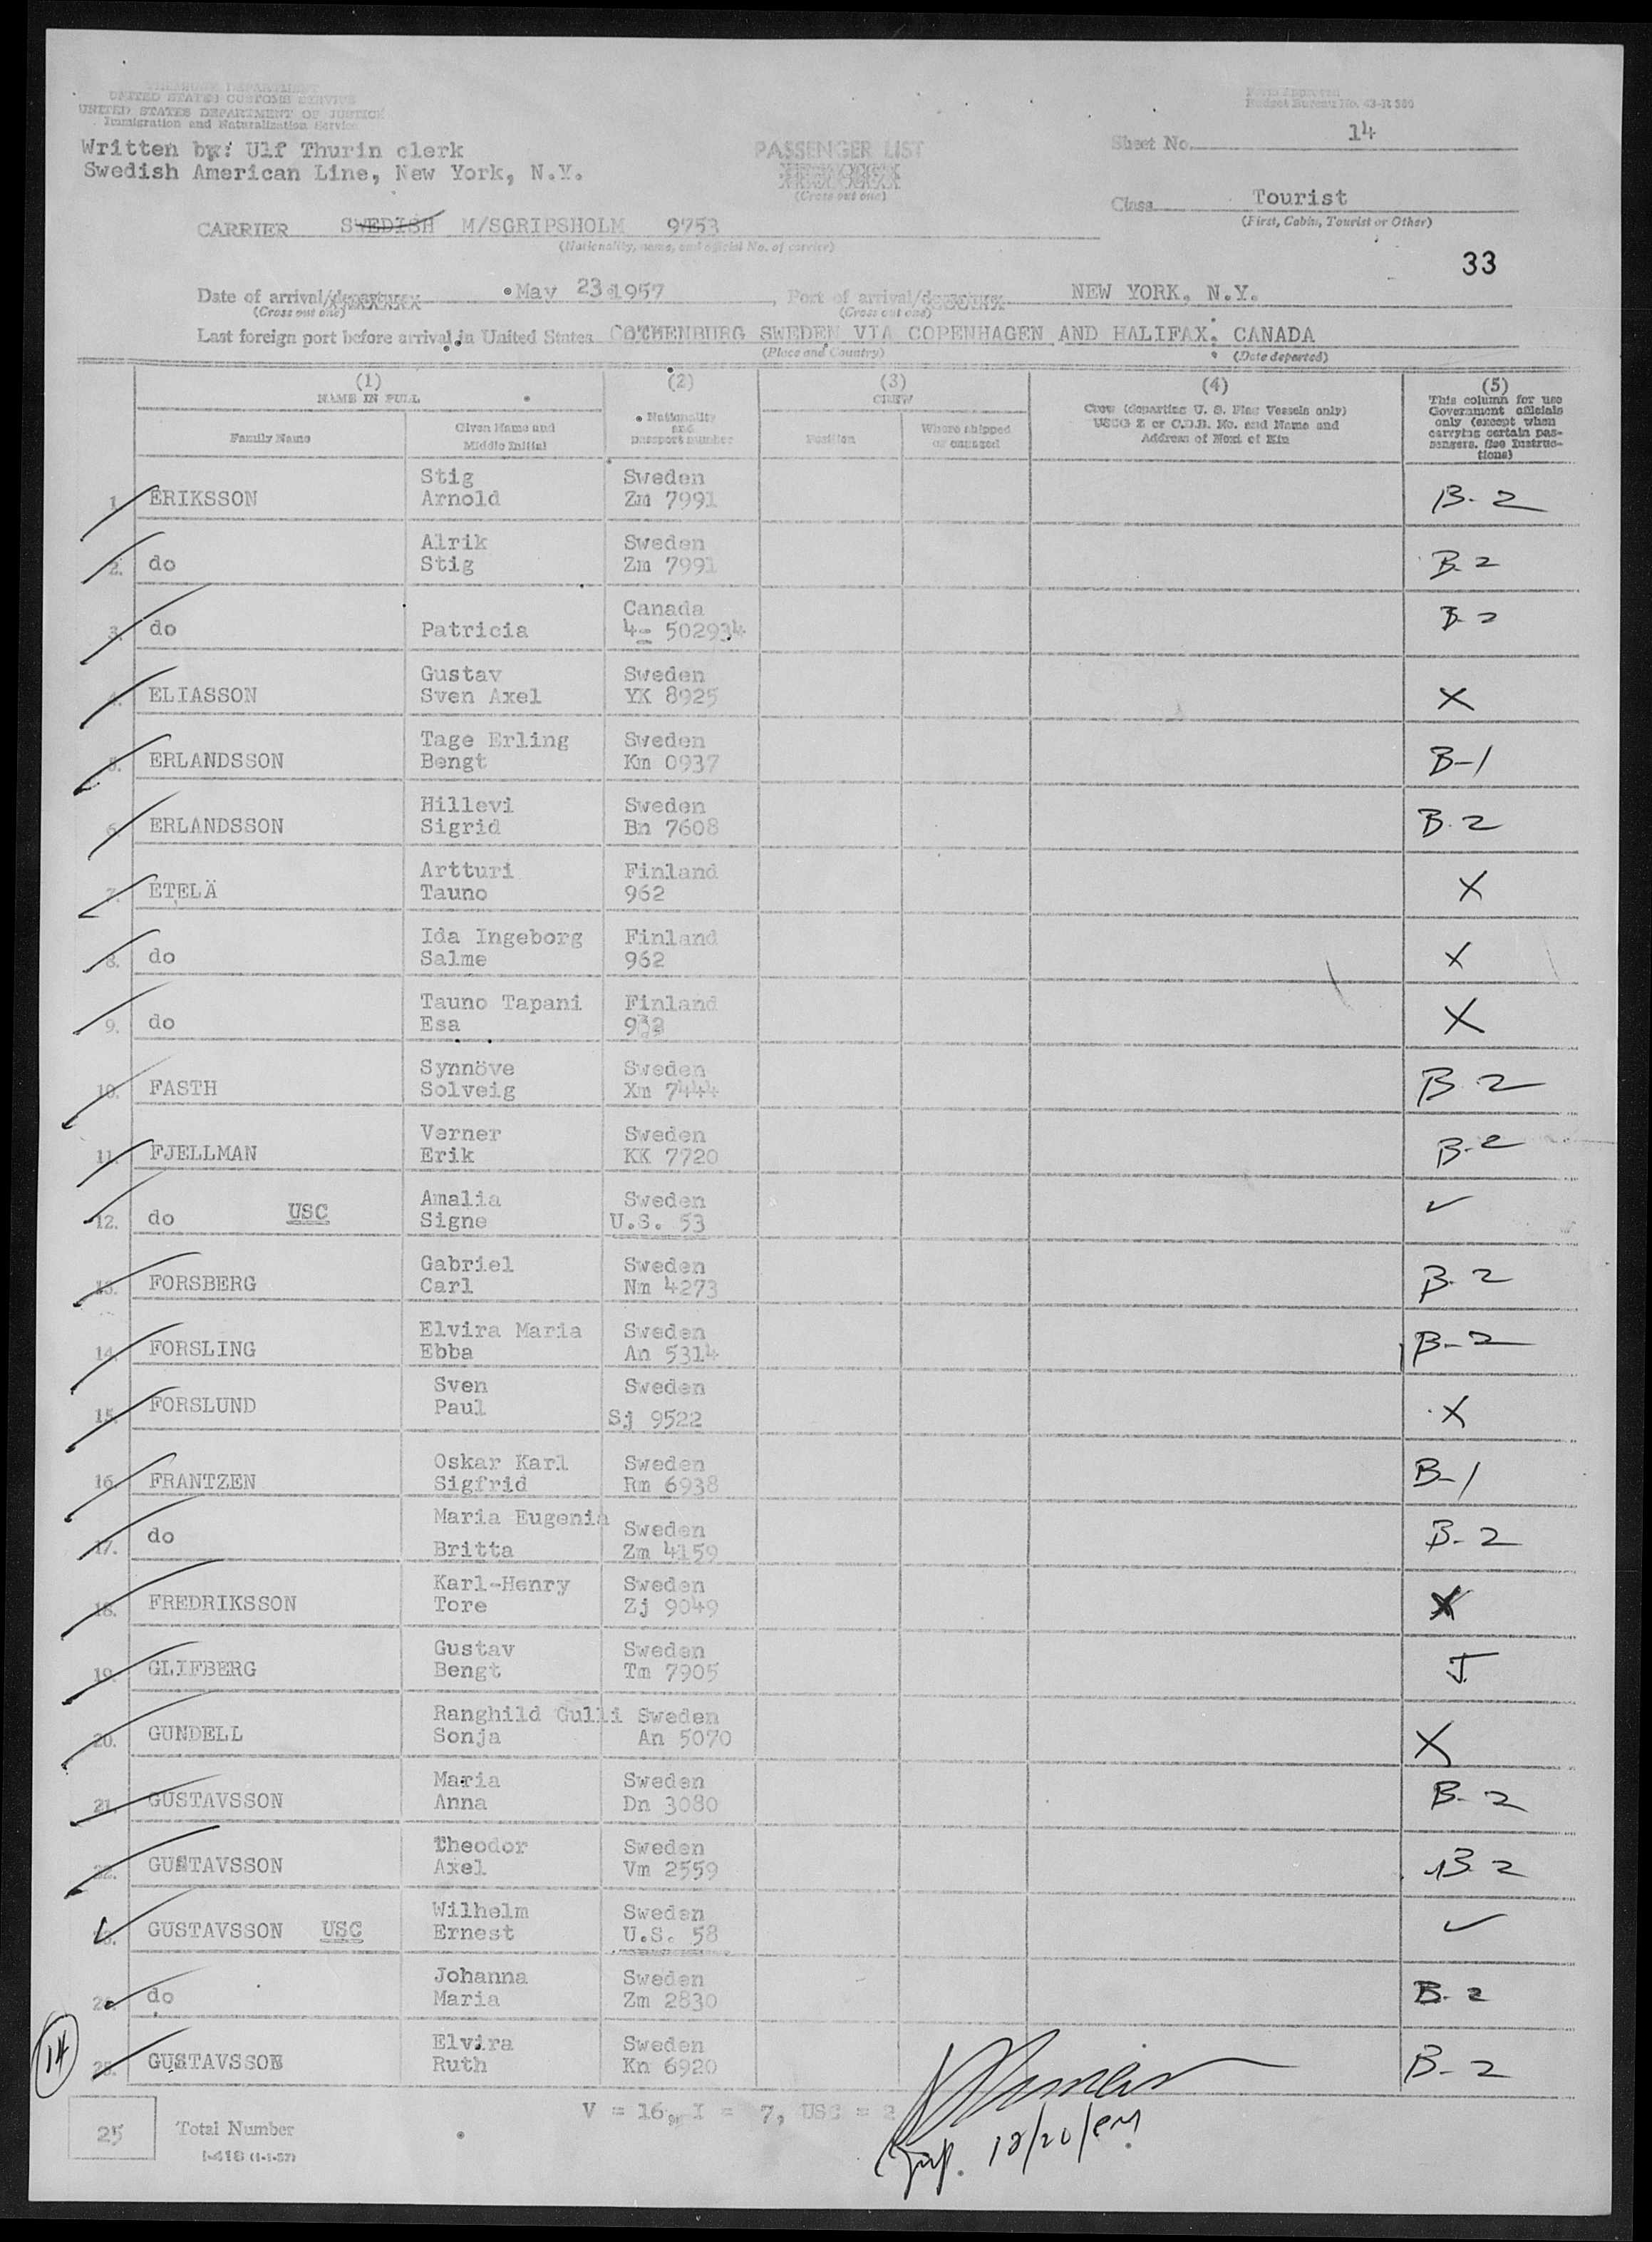 TREASURY DEPARTMENT
UNITED STATES CUSTOMS SERVICE
UNITED STATES DEPARTMENT OF JUSTICE
Immigration and Naturalization Service
Form Approved
Budget Bureau No. 43-R 380
Written by: Ulf Thurin clerk
Swedish American Line, New York, N.Y.
PASSENGER LIST
(Cross out one)
Sheet No. 14
Class Tourist
(First, Cabin, Tourist or Other)
CARRIER SWEDISH M/SGRIPSHOLM 9753
(Nationality, name, and official No. of carrier)
33
Date of arrival/departure May 23 1957, Port of arrival/departure NEW YORK, N.Y.
(Cross out one) (Cross out one)
Last foreign port before arrival in United States GOTHENBURG SWEDEN VIA COPENHAGEN AND HALIFAX. CANADA
(Place and Country) (Date departed)
(1) (2) (3) (4) (5)
NAME IN FULL
Family Name
Given Name and
Middle Initial
Nationality
and
passport number
CREW
Position
Where shipped
or engaged
Crew (departing U. S. Flag Vessels only)
USCG Z or C.D.B. No. and Name and
Address of Next of Kin
This column for use
Government officials
only (except when
carrying certain pas-
sengers. See Instruc-
tions)
Stig Sweden
1. ERIKSSON Arnold Zm 7991 B-2
Alrik Sweden
2. do Stig Zm 7991 B-2
Canada
3. do Patricia 4- 502934 B-2
Gustav Sweden
4. ELIASSON Sven Axel YK 8925 X
Tage Erling Sweden
5. ERLANDSSON Bengt Km 0937 B-1
Hillevi Sweden
6. ERLANDSSON Sigrid Bn 7608 B-2
Artturi Finland
7. ETELÄ Tauno 962 X
Ida Ingeborg Finland
8. do Salme 962 X
Tauno Tapani Finland
9. do Esa X
Synnöve Sweden
10. FASTH Solveig Xm 7444 B-2
Verner Sweden
11. FJELLMAN Erik KK 7720 B-2
Amalia Sweden
12. do USC Signe U.S. 53 ✓
Gabriel Sweden
13. FORSBERG Carl Nm 4273 B-2
Elvira Maria Sweden
14. FORSLING Ebba An 5314 B-2
Sven Sweden
15. FORSLUND Paul Sj 9522 X
Oskar Karl Sweden
16. FRANTZEN Sigfrid Rm 6938 B-1
Maria Eugenia Sweden
17. do Britta Zm 4159 B-2
Karl-Henry Sweden
18. FREDRIKSSON Tore Zj 9049 X
Gustav Sweden
19. GLIFBERG Bengt Tm 7905 J.
Ranghild Gulli Sweden
20. GUNDELL Sonja An 5070 X
Maria Sweden
21. GUSTAVSSON Anna Dn 3080 B-2
Theodor Sweden
22. GUSTAVSSON Axel Vm 2559 B-2
Wilhelm Sweden
23. GUSTAVSSON USC Ernest U.S. 58 ✓
Johanna Sweden
24. do Maria Zm 2830 B-2
Elvira Sweden
25. GUSTAVSSON Ruth Kn 6920 B-2
14
V = 16, I = 7, USC = 2
25 Total Number
I-418 (1-1-57)